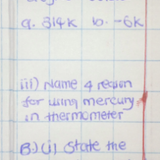 a. 314k b. -6k
iii) Name 4 reason
for using mercury
in thermometer
B) (i) State the